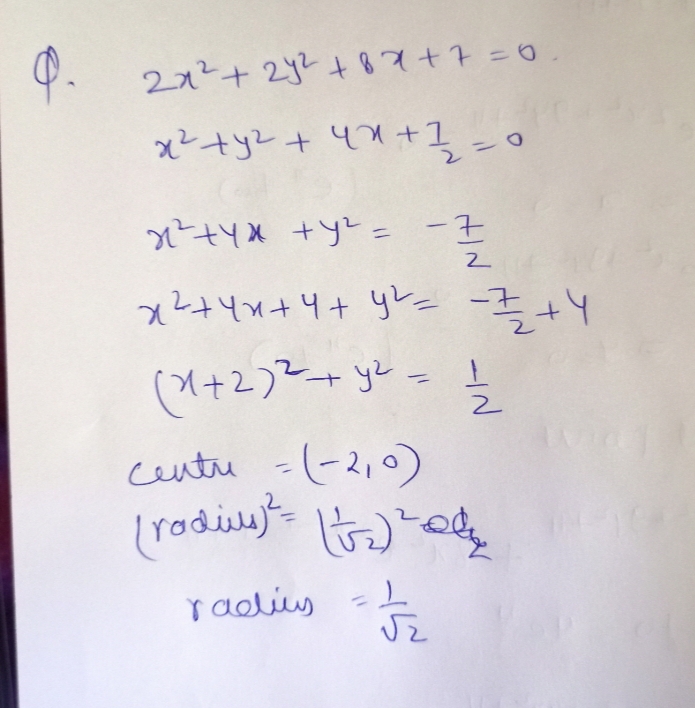 Q. 2x² + 2y² + 8x + 7 = 0.
x² + y² + 4x + 7/2 = 0
x² + 4x + y² = -7/2
x² + 4x + 4 + y² = -7/2 + 4
(x+2)² + y² = 1/2
centre = (-2, 0)
(radius)² = (1/√2)²
radius = 1/√2